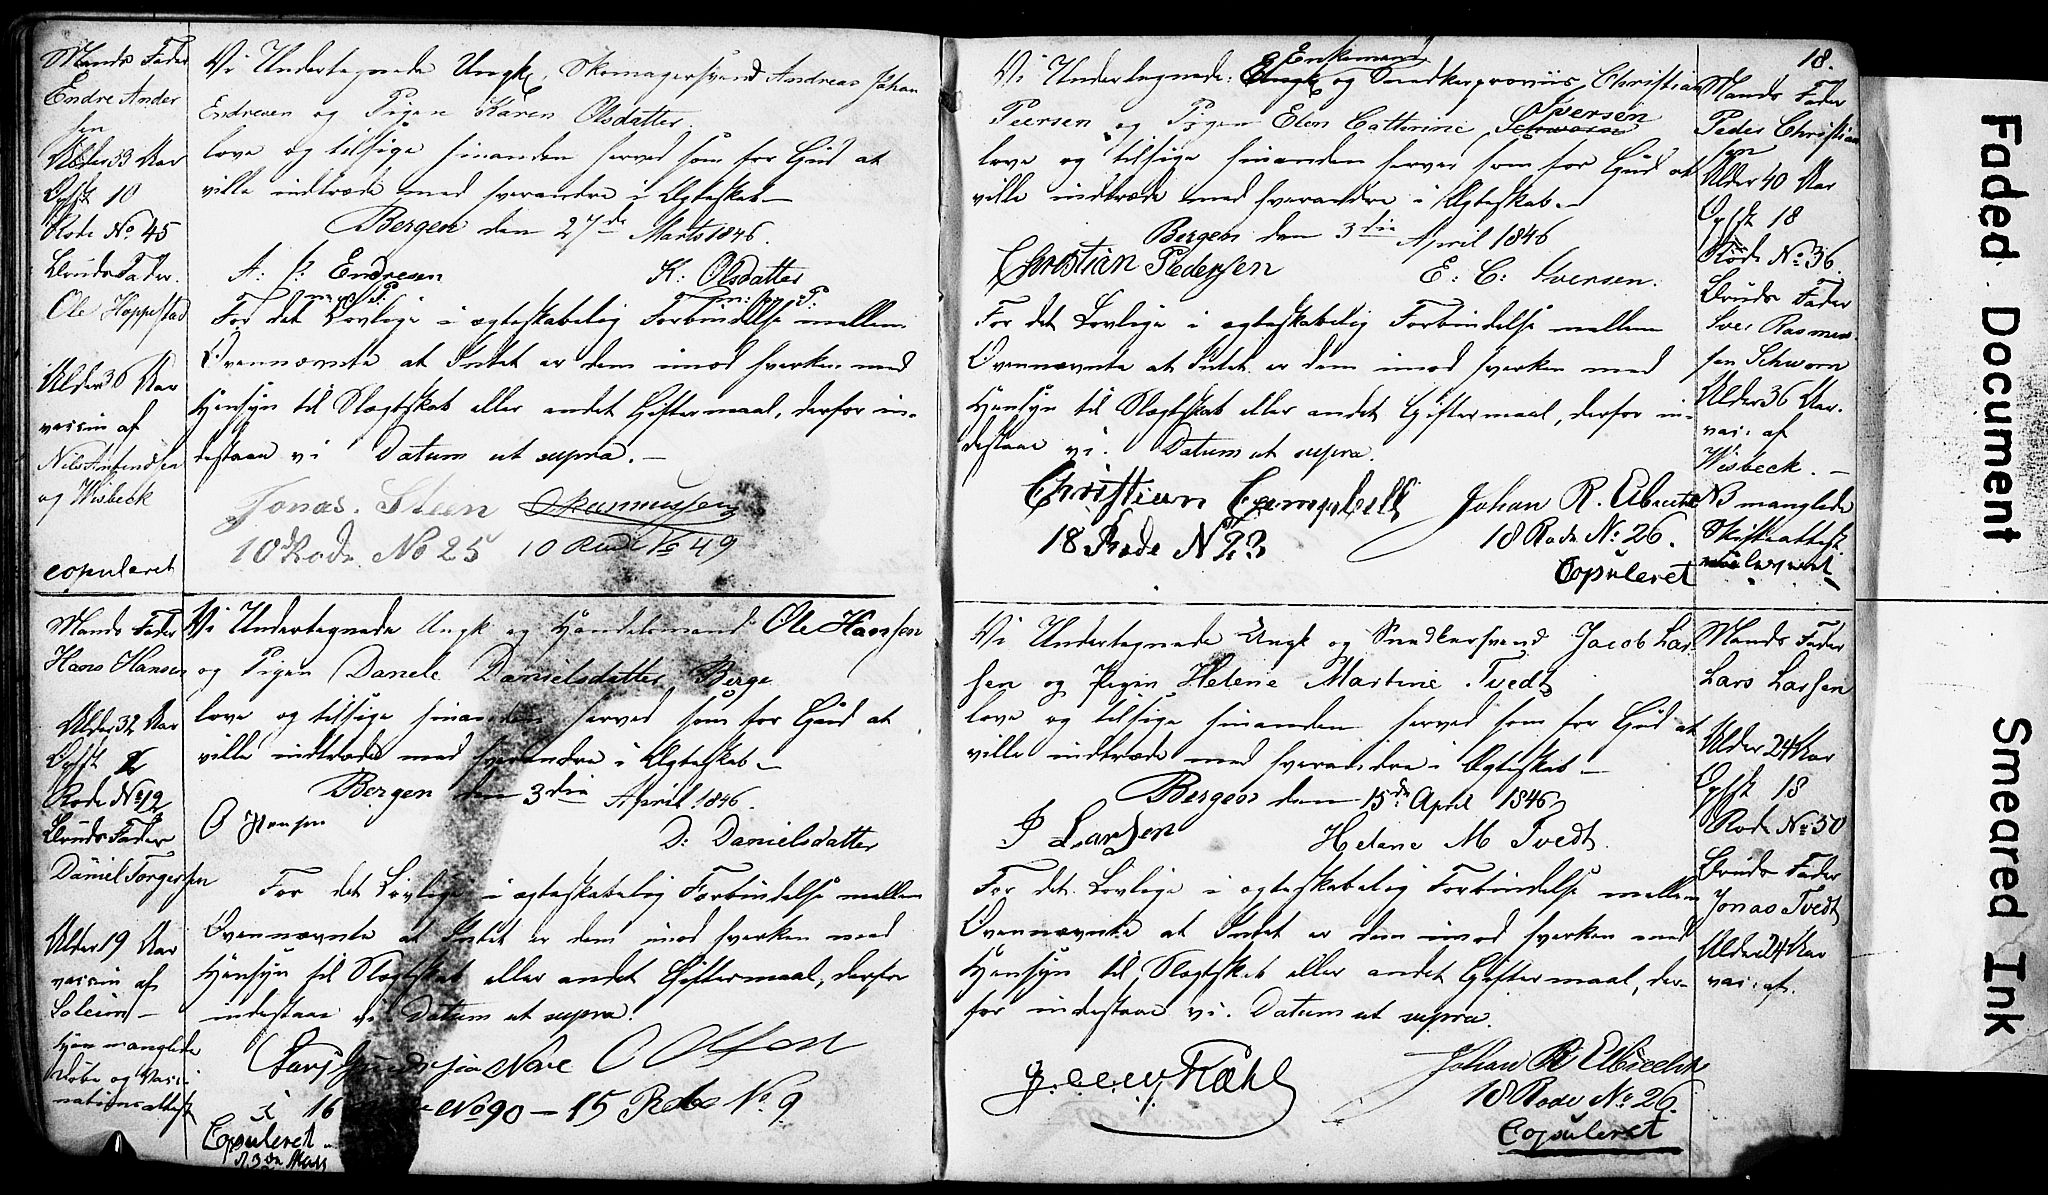 Mands Fader
Endre Ander
sen
Alder 33 Aar
Opfst 10
Rode No 45
Bruds Fader.
Ole Hoppestad
Alder 36 Aar
vaccin af
og Wisbeck
copuleret
Vi Undertegnede Ungk. Skomagersvend Andreas Johan
Endresen og Pigen Karen Olsdatter.
love og tilsige hinanden herved som for Gud at
ville indtræde med hverandre i Ægteskab.
Bergen den 27de Marts 1846.
A: J: Endresen K: Olsdatter
m. f. P. m: f: P:
For det Lovlige i ægteskabelig Forbindelse mellem
Ovennævnte at Intet er dem imod hverken med
Hensyn til Slægtskab eller andet Giftermaal, derfor in-
destaae vi Datum ut supra. —
Jonas. Steen Rasmussen
10de Rode No 25 10 Rode No 49
Mands Fader
Hans Hansen
Alder 32 Aar
Opfst 2
Rode No 12
Bruds Fader
Daniel Torgersen
Alder 19 Aar
vaccin af
Soleim —
Hun manglede
Døbe og Vacci
nationsattest
Vi Undertegnede Ungk og Handelsmand Ole Hansen
og Pigen Danele Danielsdatter Berge
love og tilsige hinanden herved som for Gud at
ville indtræde med hverandre i Ægteskab.
Bergen den 3die April 1846.
O Hansen
D: Danielsdatter
For det Lovlige i ægteskabelig Forbindelse mellem
Ovennævnte at Intet er dem imod hverken med
Hensyn til Slægtskab eller andet Giftermaal, derfor
indestaae vi Datum ut supra.
No 90 — 15 Rode No. 9
Copuleret
18.
Enkemand
Vi Undertegnede: Ungk og Snedkerproviis Christian
Iversen
Peersen og Pigen Elen Catherine Schworn
love og tilsige hinanden herved som for Gud at
ville indtræde med hverandre i Ægteskab. —
Bergen den 3die April 1846
Christian Pedersen E: C: Iversen.
For det Lovlige i ægteskabelig Forbindelse mellem
Ovennævnte at Intet er dem imod hverken med
Hensyn til Slægtskab eller andet Giftermaal, derfor in-
destaae vi. Datum ut supra.
Christian Campbell Johan R.
18 Rode N 23 18 Rode No. 26.
Copuleret
Mands Fader
Peder Christian
sen
Alder 40 Aar
Opfst 18
Rode No. 36.
Bruds Fader
Iver Rasmus-
sen Schworn
Alder 36 Aar.
vac: af
Wisbeck. —
NB manglede
Skifteattest
Vi Undertegnede Ungk og Snedkersvend Jacob Lar
sen og Pigen Helene Martine Tvedt
love og tilsige hinanden herved som for Gud at
ville indtræde med hverandre i Ægteskab —
Bergen den 15de April 1846
J Larsen Helene M Tvedt.
For det Lovlige i ægteskabelig Forbindelse mellem
Ovennævnte at Intet er dem imod hverken med
Hensyn til Slægtskab eller andet Giftermaal, der-
for indestaae vi. Datum ut supra.
Johan R
18 Rode No. 26.
Copuleret
Mands Fader
Lars Larsen
Alder 24 Aar
Opfst 18
Rode No. 30
Bruds Fader
Jonas Tvedt
Alder 24 Aar
vac: af.
Faded Document
Smeared Ink